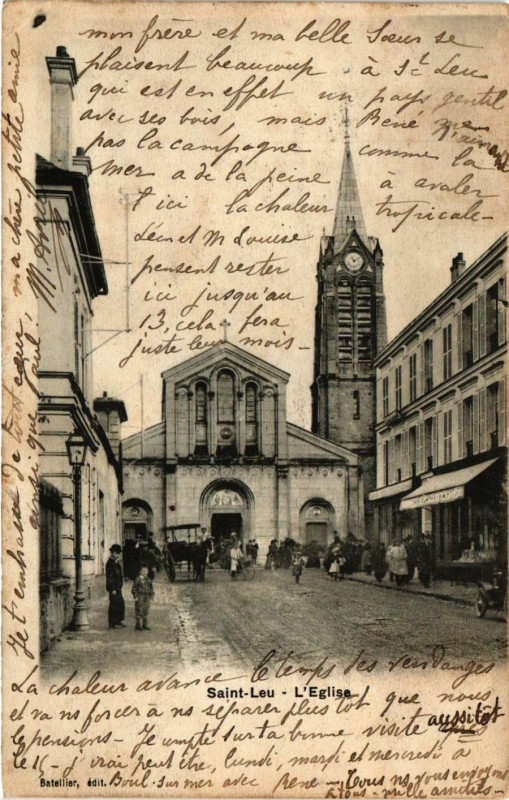 mon frère et ma belle Sœur se
plaisent beaucoup à St Leu
qui est en effet un pays gentil
avec ses bois, mais René n'aimant
pas la campagne comme la
mer a de la peine à avaler
ici la chaleur tropicale-
Léon et M Louise
pensent rester
ici jusqu'au
13, cela fera
juste leur mois-
Je t'embrasse de tout cœur, ma chère petite amie
ainsi que Paul,
La chaleur avance le temps des vendanges
et va ns forcer à ns séparer plus tot que nous
le pensions- Je compte sur ta bonne visite aussitôt
le 15- J'irai peut être, lundi, mardi et mercredi à
Boul. sur mer avec René- Tous ns vous envoyons
à tous- mille amitiés-
Saint-Leu - L'Eglise
Batellier, édit.